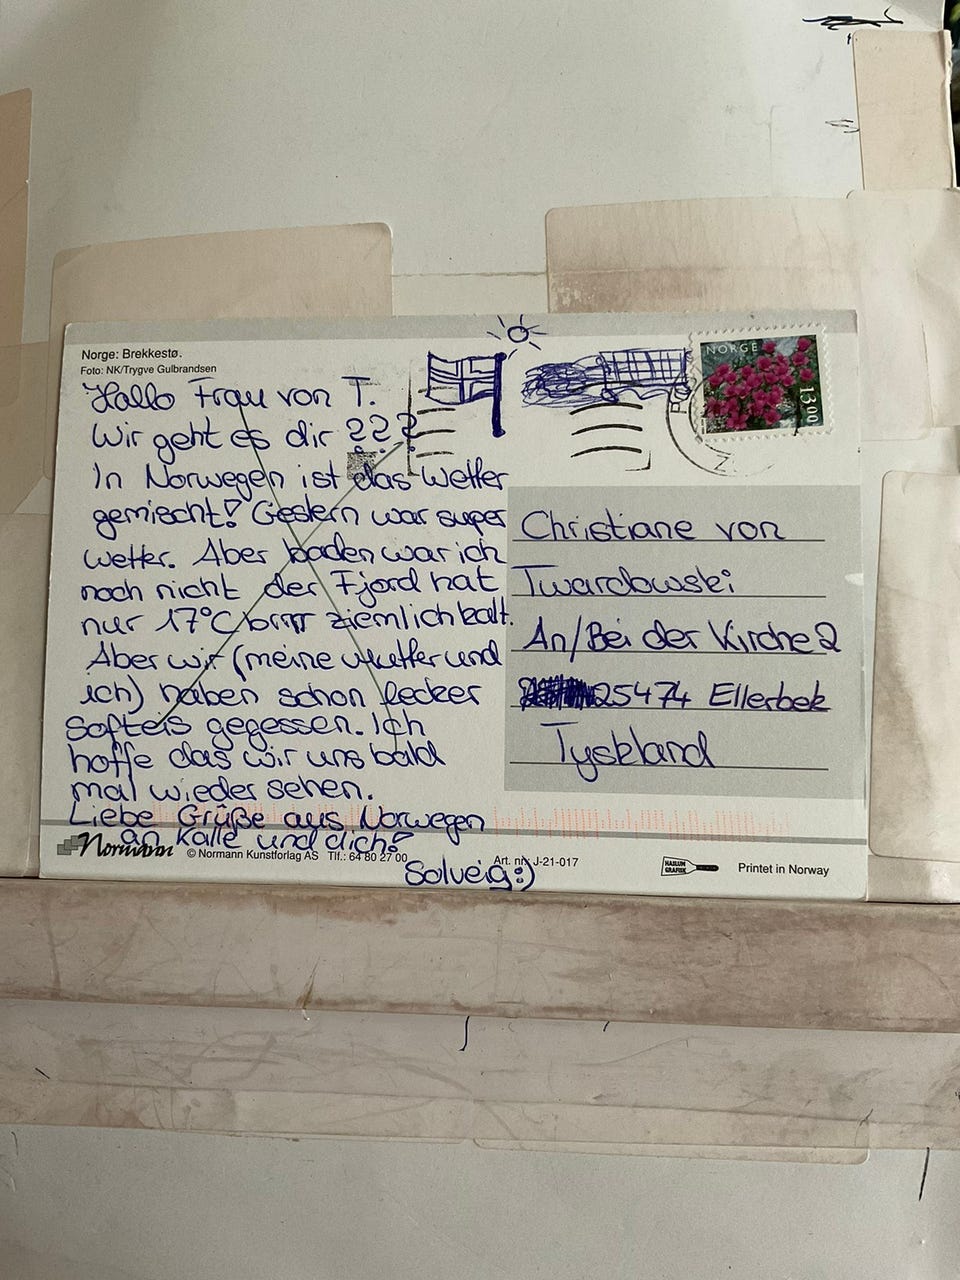 Norge: Brekkestø.
Foto: NK/Trygve Gulbrandsen
Hallo Frau von T.
Wir geht es dir ???
In Norwegen ist das Wetter
gemischt! Gestern war super
wetter. Aber baden war ich
noch nicht der Fjord hat
nur 17°C brrr ziemlich kalt.
Aber wir (meine Mutter und
ich) haben schon lecker
Softeis gegessen. Ich
hoffe das wir uns bald
mal wieder sehen.
Liebe Grüße aus Norwegen
an Kalle und dich!
Solveig:)
NORGE
13 00
Christiane von
Twardowski
An/Bei der Kirche 2
25474 Ellerbek
Tyskland
Normann
© Normann Kunstforlag AS Tlf.: 64 80 27 00
Art. nr.: J-21-017
HASLUM GRAFISK
Printet in Norway